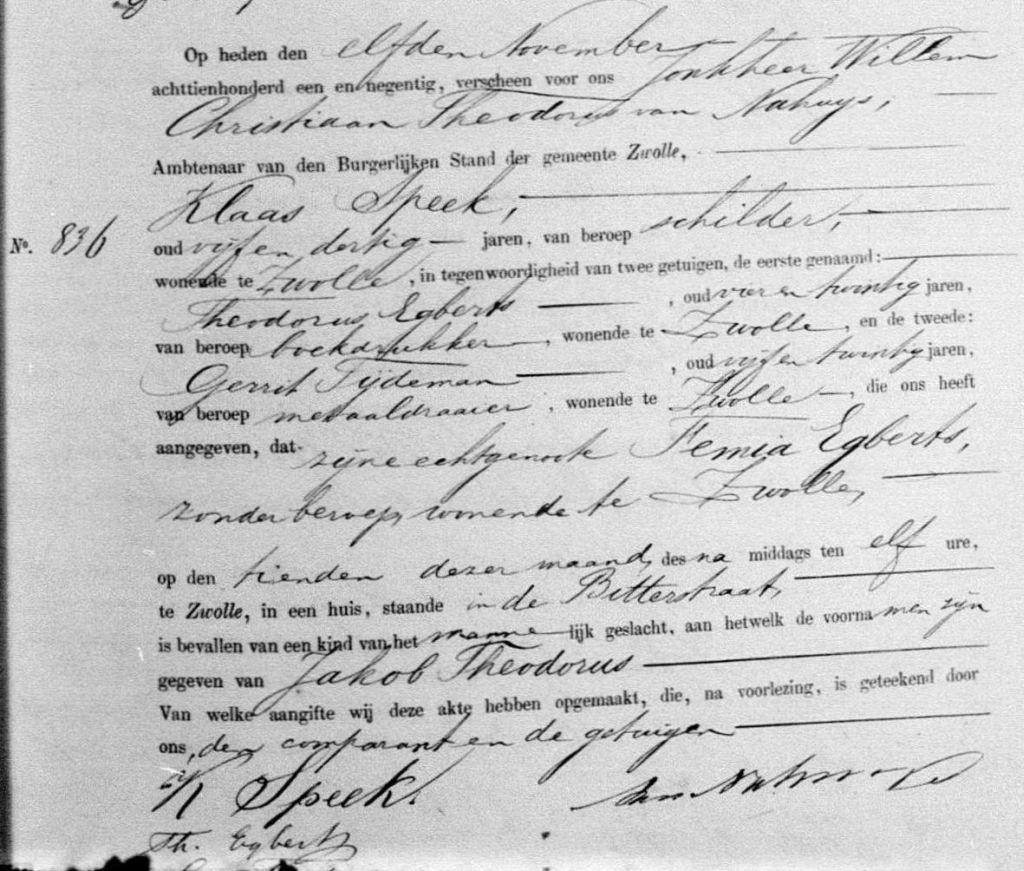 Op heden den elfden November
achttienhonderd een en negentig, verscheen voor ons Jonkheer Willem
Christiaan Theodorus van Nahuys,
Ambtenaar van den Burgerlijken Stand der gemeente Zwolle,
Klaas Speek,
No. 836 oud vijf en dertig jaren, van beroep schilder,
wonende te Zwolle, in tegenwoordigheid van twee getuigen, de eerste genaamd:
Theodorus Egberts, oud vier en twintig jaren,
van beroep boekdrukker, wonende te Zwolle, en de tweede:
Gerrit Tijdeman, oud vijf en twintig jaren,
van beroep metaaldraaier, wonende te Zwolle, die ons heeft
aangegeven, dat zijne echtgenoote Femia Egberts,
zonder beroep, wonende te Zwolle,
op den tienden dezer maand, des na middags ten elf ure,
te Zwolle, in een huis, staande in de Bitterstraat,
is bevallen van een kind van het manne lijk geslacht, aan hetwelk de voorna men zijn
gegeven van Jakob Theodorus
Van welke aangifte wij deze akte hebben opgemaakt, die, na voorlezing, is geteekend door
ons, den comparant en de getuigen
K Speek
Th. Egberts